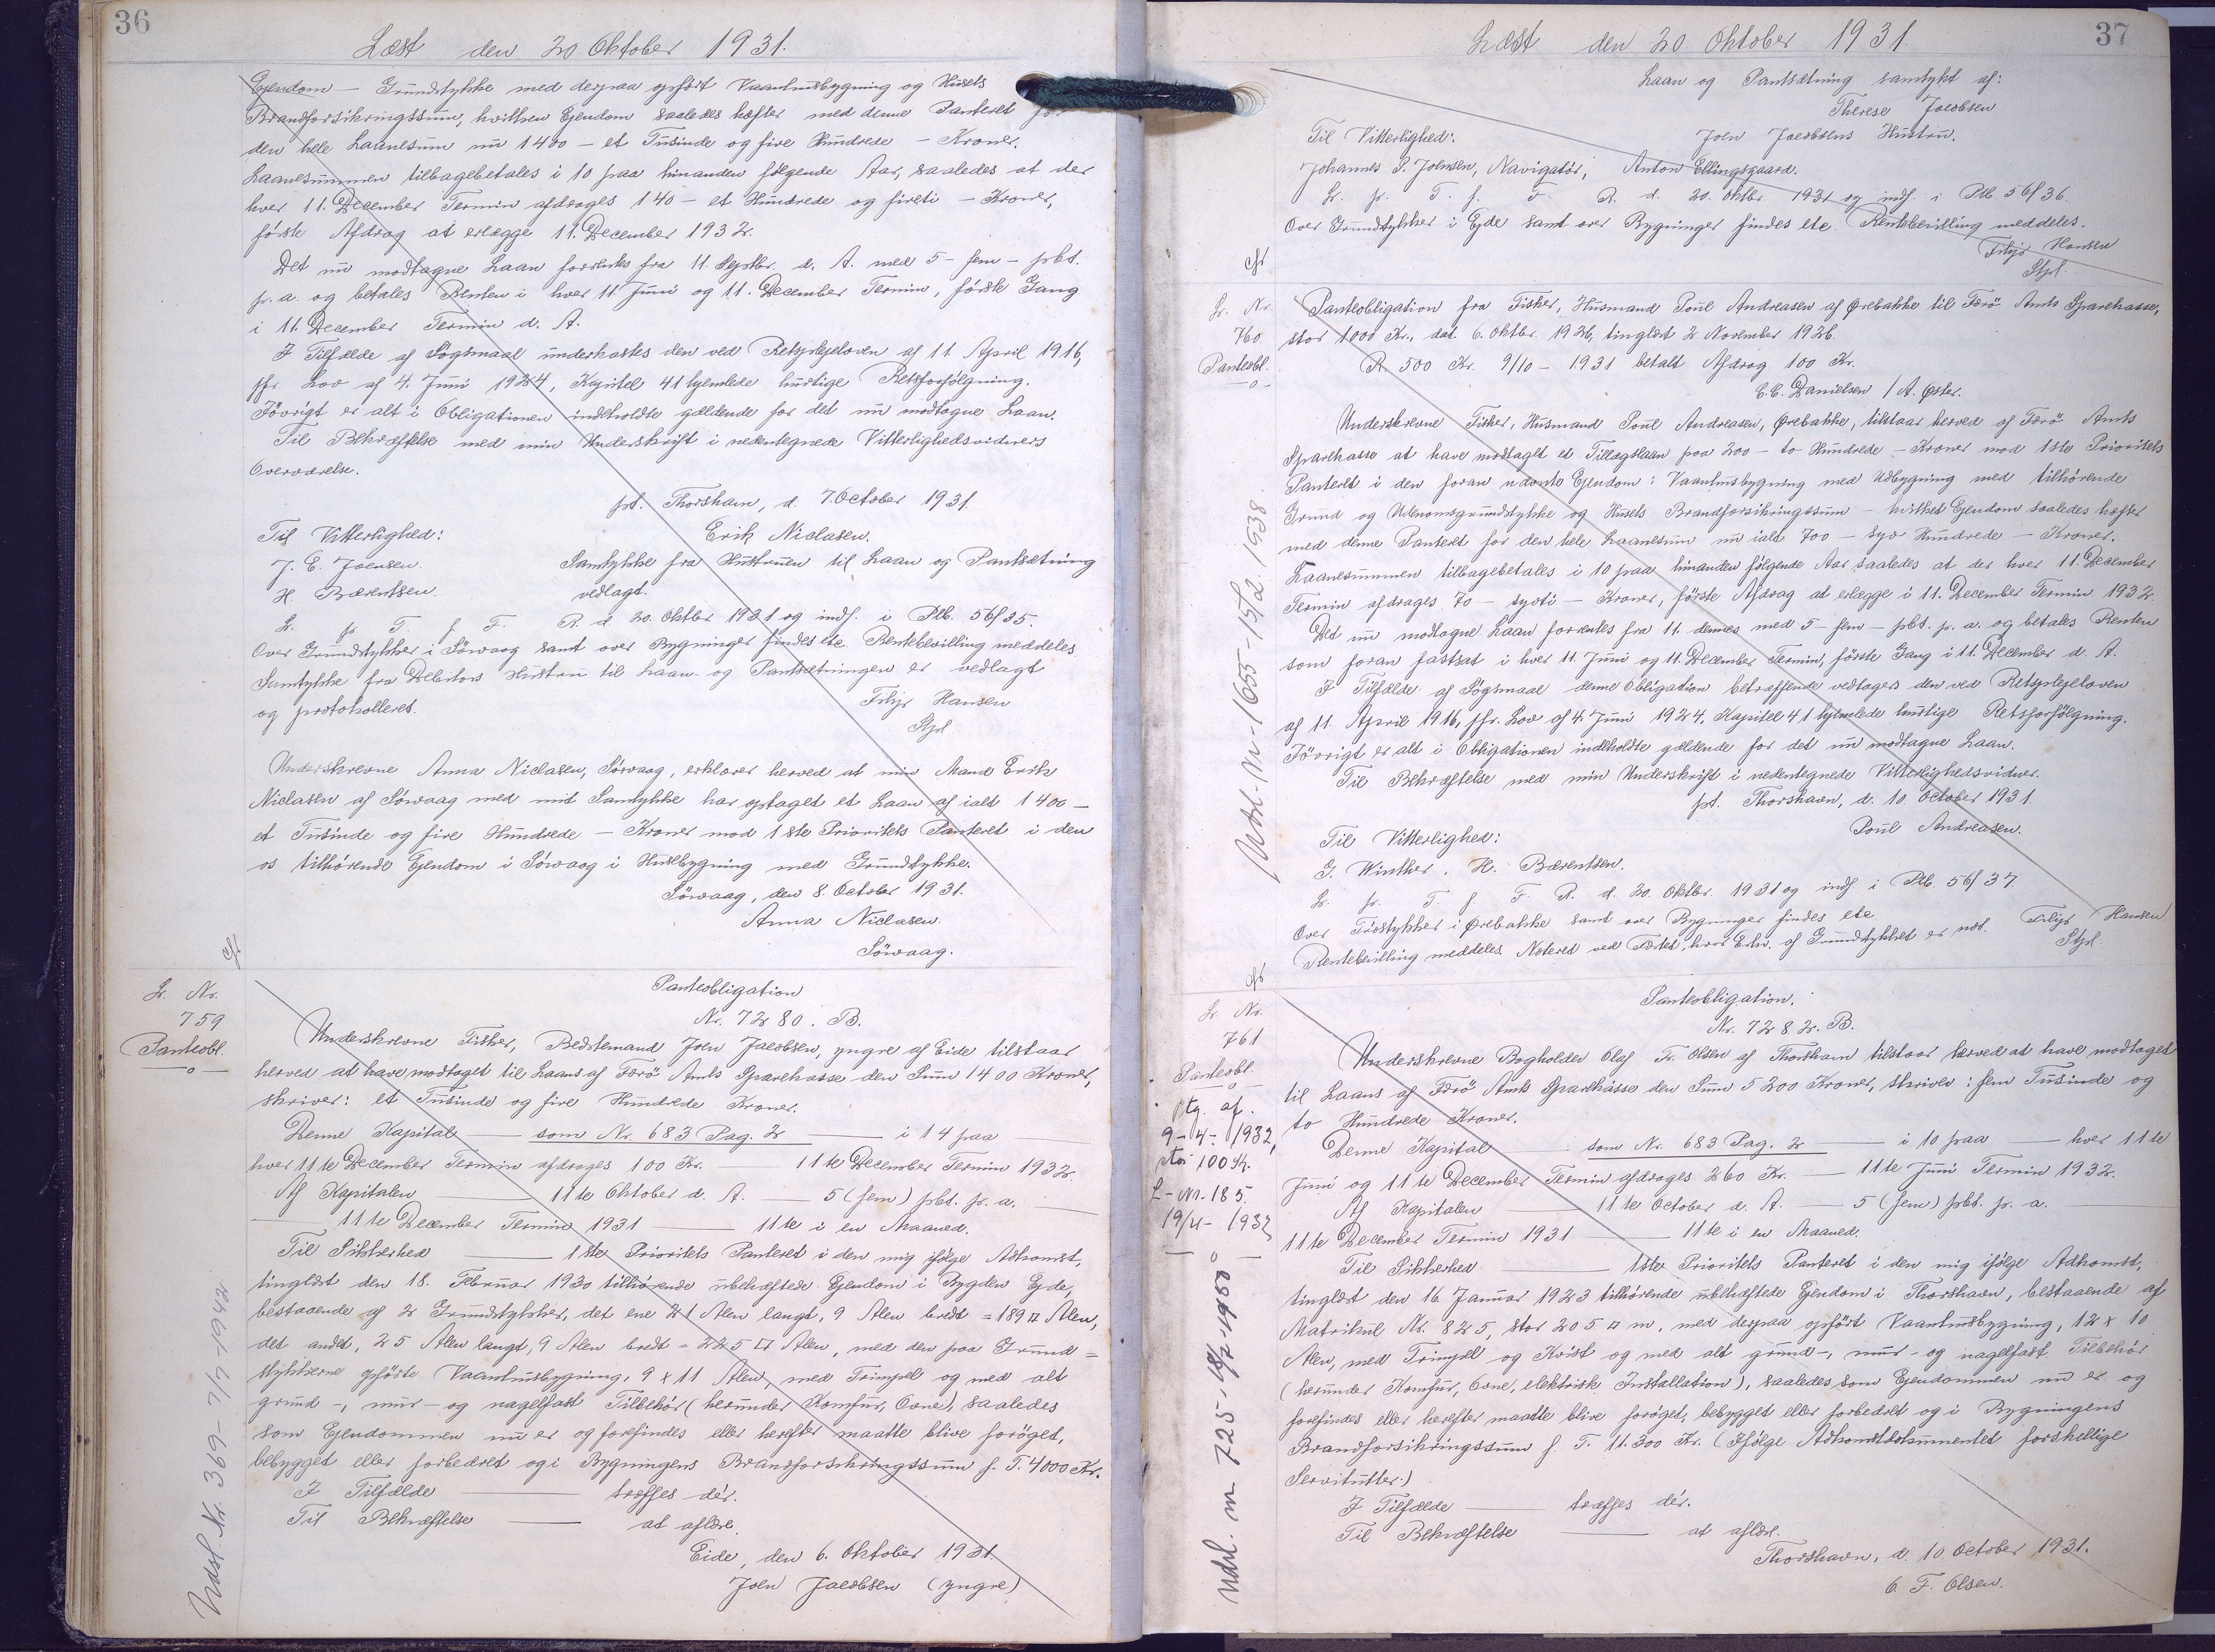 36
Læst den 20. Oktober 1931.
Ejendom – Grundstykke med derpaa opført Vaaanhusbygning og Husets
Brandforsikringssum, hvilken Ejendom saaledes hæfter med denne Panteret for
den hele Laanesum nu 1400 – et Tusinde og fire Hundrede – Kroner.
Laanesummen tilbagebetales i 10 paa hinanden følgende Aar, saaledes at der
hver 11. December Termin afdrages 140 – et Hundrede og fireti – Kroner,
første Afdrag at erlægge 11. December 1932.
Det nu modtagne Laan forrentes fra 11. Septbr. d. A. med 5 – fem – pCt.
p. a. og betales Renten i hver 11. Juni og 11. December Termin, første Gang
i 11. December Termin d. A.
I Tilfælde af Søgsmaal underkastes den ved Retsplejeloven af 11. April 1916,
jfr. Lov af 4. Juni 1924, Kapitel 41 hjemlede hurtige Retsforfølgning.
Iøvrigt er alt i Obligationen indeholdte gældende for det nu modtagne Laan.
Til Bekræftelse med min Underskrift i nedentegnede Vitterlighedsvidners
Overværelse.
pt. Thorshavn, d. 7. October 1931.
Til Vitterlighed: Erik Niclasen.
J. E. Joensen. Samtykke fra Hustruen til Laan og Pantsætning
H. Bærentsen. vedlagt.
L. p. T. f. F. R. d. 20. Oktbr. 1931 og indf. i Ptb. 56/35.
Over Grundstykker i Sørvaag samt over Bygninger findes ete. Rentebevilling meddeles
Samtykke fra Debitors Hustru til Laan- og Pantsætningen er vedlagt
og protokolleret. Filip Hansen
Stpl
Underskrevne Anna Niclasen, Sørvaag, erklærer herved at min Mand Erik
Niclasen af Sørvaag med mit Samtykke har optaget et Laan af ialt 1400 –
et Tusinde og fire Hundrede – Kroner mod 1ste Prioritets Panteret i den
os tilhørende Ejendom i Sørvaag i Husebygning med Grundstykke.
Sørvaag, den 8. October 1931.
Anna Niclasen.
Sørvaag.
L. Nr.
759
Panteobl.
Panteobligation
Nr. 7280. B.
Underskrevne Fisker, Bedstemand Joen Jacobsen, yngre af Eide tilstaar
herved at have modtaget til Laans af Færø Amts Sparekasse den Sum 1400 Kroner,
skriver: et Tusinde og fire Hundrede Kroner.
Denne Kapital — som Nr. 683 Pag. 2 — i 14 paa —
hver 11te December Termin afdrages 100 Kr. — 11te December Termin 1932.
Af Kapitalen — 11te Oktober d. A. — 5 (fem) pCt. p. a. —
— 11te December Termin 1931 — 11te i en Maaned.
Til Sikkerhed — 1ste Prioritets Panteret i den mig ifølge Adkomst,
tinglæst den 18. Februar 1930 tilhørende ubehæftede Ejendom i Bygden Ejde,
bestaaende af 2 Grundstykker, det ene 21 Alen langt, 9 Alen bredt = 189 □ Alen,
det andet, 25 Alen langt, 9 Alen bredt = 225 □ Alen, med den paa Grund=
stykkerne opførte Vaanhusbygning, 9 x 11 Alen, med Trimpel og med alt
grund -, mur - og nagelfast Tilbehør (herunder Komfur, Ovne), saaledes
som Ejendommen nu er og forefindes eller herefter maatte blive forøget,
bebygget eller forbedret og i Bygningens Brandforsikringssum f. T. 4000 Kr.
I Tilfælde — træffes dér.
Til Bekræftelse — at aflæse.
Eide, den 6. Oktober 1931.
Joen Jacobsen (yngre)
Udsl. Nr. 369 - 7/7 1942
37
Læst den 20 Oktober 1931.
Laan og Pantsætning samtykt af:
Therese Jacobsen
Til Vitterlighed: Joen Jacobsens Hustru.
Johannes P. Joensen, Navigatør, Anton Ellingsgaard.
L. p. T. f. F. R. d. 20. Oktbr. 1931 og indf. i Ptb. 56/36.
Over Grundstykker i Ejde samt over Bygninger findes ete. Rentebevilling meddeles.
Filip Hansen
Stpl.
L. Nr.
760.
Panteobl.
Panteobligation fra Fisker, Husmand Poul Andreasen af Ørebakke til Færø Amts Sparekasse,
stor 1000 Kr., dat. 6. Oktbr. 1926, tinglæst 2 November 1926.
R. 500 Kr. 9/10 – 1931 betalt Afdrag 100 Kr.
E. E. Danielsen / A. Øster.
Underskrevne Fisker, Husmand Poul Andreasen, Ørebakke, tilstaar herved af Færø Amts
Sparekasse at have modtaget et Tillægslaan paa 200 – to Hundrede – Kroner mod 1ste Prioritets
Panteret i den foran nævnte Ejendom: Vaanhusbygning med Udbygning med tilhørende
Grund og Udenomsgrundstykke og Husets Brandforsikringssum – hvilken Ejendom saaledes hæfter
med denne Panteret for den hele Laanesum nu ialt 700 – syv Hundrede – Kroner.
Laanesummen tilbagebetales i 10 paa hinanden følgende Aar saaledes at der hver 11. December
Termin afdrages 70 – syvti – Kroner, første Afdrag at erlægge i 11. December Termin 1932.
Det nu modtagne Laan forrentes fra 11. dennes med 5 – fem – pCt. p. a. og betales Renten
som foran fastsat i hver 11. Juni og 11. December Termin, første Gang i 11. December d. A.
I Tilfælde af Søgsmaal denne Obligation betræffende vedtages den ved Retsplejeloven
af 11. April 1916, jfr. Lov af 4. Juni 1924, Kapitel 41 hjemlede hurtige Retsforfølgning.
Iøvrigt er alt i Obligationen indeholdte gældende for det nu modtagne Laan.
Til Bekræftelse med min Underskrift i nedentegnede Vitterlighedsvidner.
pt. Thorshavn, d. 10. October 1931.
Til Vitterlighed: Poul Andreasen.
G. Winther. H. Bærentsen.
L. p. T. f. F. R. d. 20. Oktbr. 1931 og indf i Ptb. 56/37.
Over Træstykker i Ørebakke samt over Bygninger findes ete.
Rentebevilling meddeles. Noteret ved Fæstet, hvor Erhv. af Grundstykket er not. Filip Hansen
Stpl.
Udsl - Nr - 1655 - 15/2 1938.
L. Nr.
761
Panteobl.
Ptg. af.
9 - 4 - 1932,
stor 100 Kr.
L - Nr. 185.
19/4 - 1932
Panteobligation.
Nr. 7282. B.
Underskrevne Bogholder Olaf Fr. Olsen af Thorshavn tilstaar herved at have modtaget
til Laans af Færø Amts Sparekasse den Sum 5200 Kroner, skriver: fem Tusinde og
to Hundrede Kroner.
Denne Kapital — som Nr. 683 Pag. 2 — i 10 paa — hver 11te
Juni og 11te December Termin afdrages 260 Kr. — 11te Juni Termin 1932.
Af Kapitalen — 11te October d. A. — 5 (fem) pCt. p. a. —
11te December Termin 1931 — 11te i en Maaned.
Til Sikkerhed — 1ste Prioritets Panteret i den mig ifølge Adkomst,
tinglæst den 16. Januar 1923 tilhørende ubehæftede Ejendom i Thorshavn, bestaaende af
Matrikul Nr. 825, stor 205 □ m, med derpaa opført Vaanhusbygning, 12 x 10
Alen, med Trimpel og Kvist og med alt grund -, mur - og nagelfast Tilbehør
(herunder Komfur, Ovne, elektrisk Installation), saaledes som Ejendommen nu er og
forefindes eller herefter maatte blive forøget, bebygget eller forbedret og i Bygningens
Brandforsikringssum f. T. 11.300 Kr. (Ifølge Adkomstdokumentet forskellige
Servitutter.)
I Tilfælde — træffes dér.
Til Bekræftelse — at aflæse.
Thorshavn, d. 10. October 1931.
O. F. Olsen.